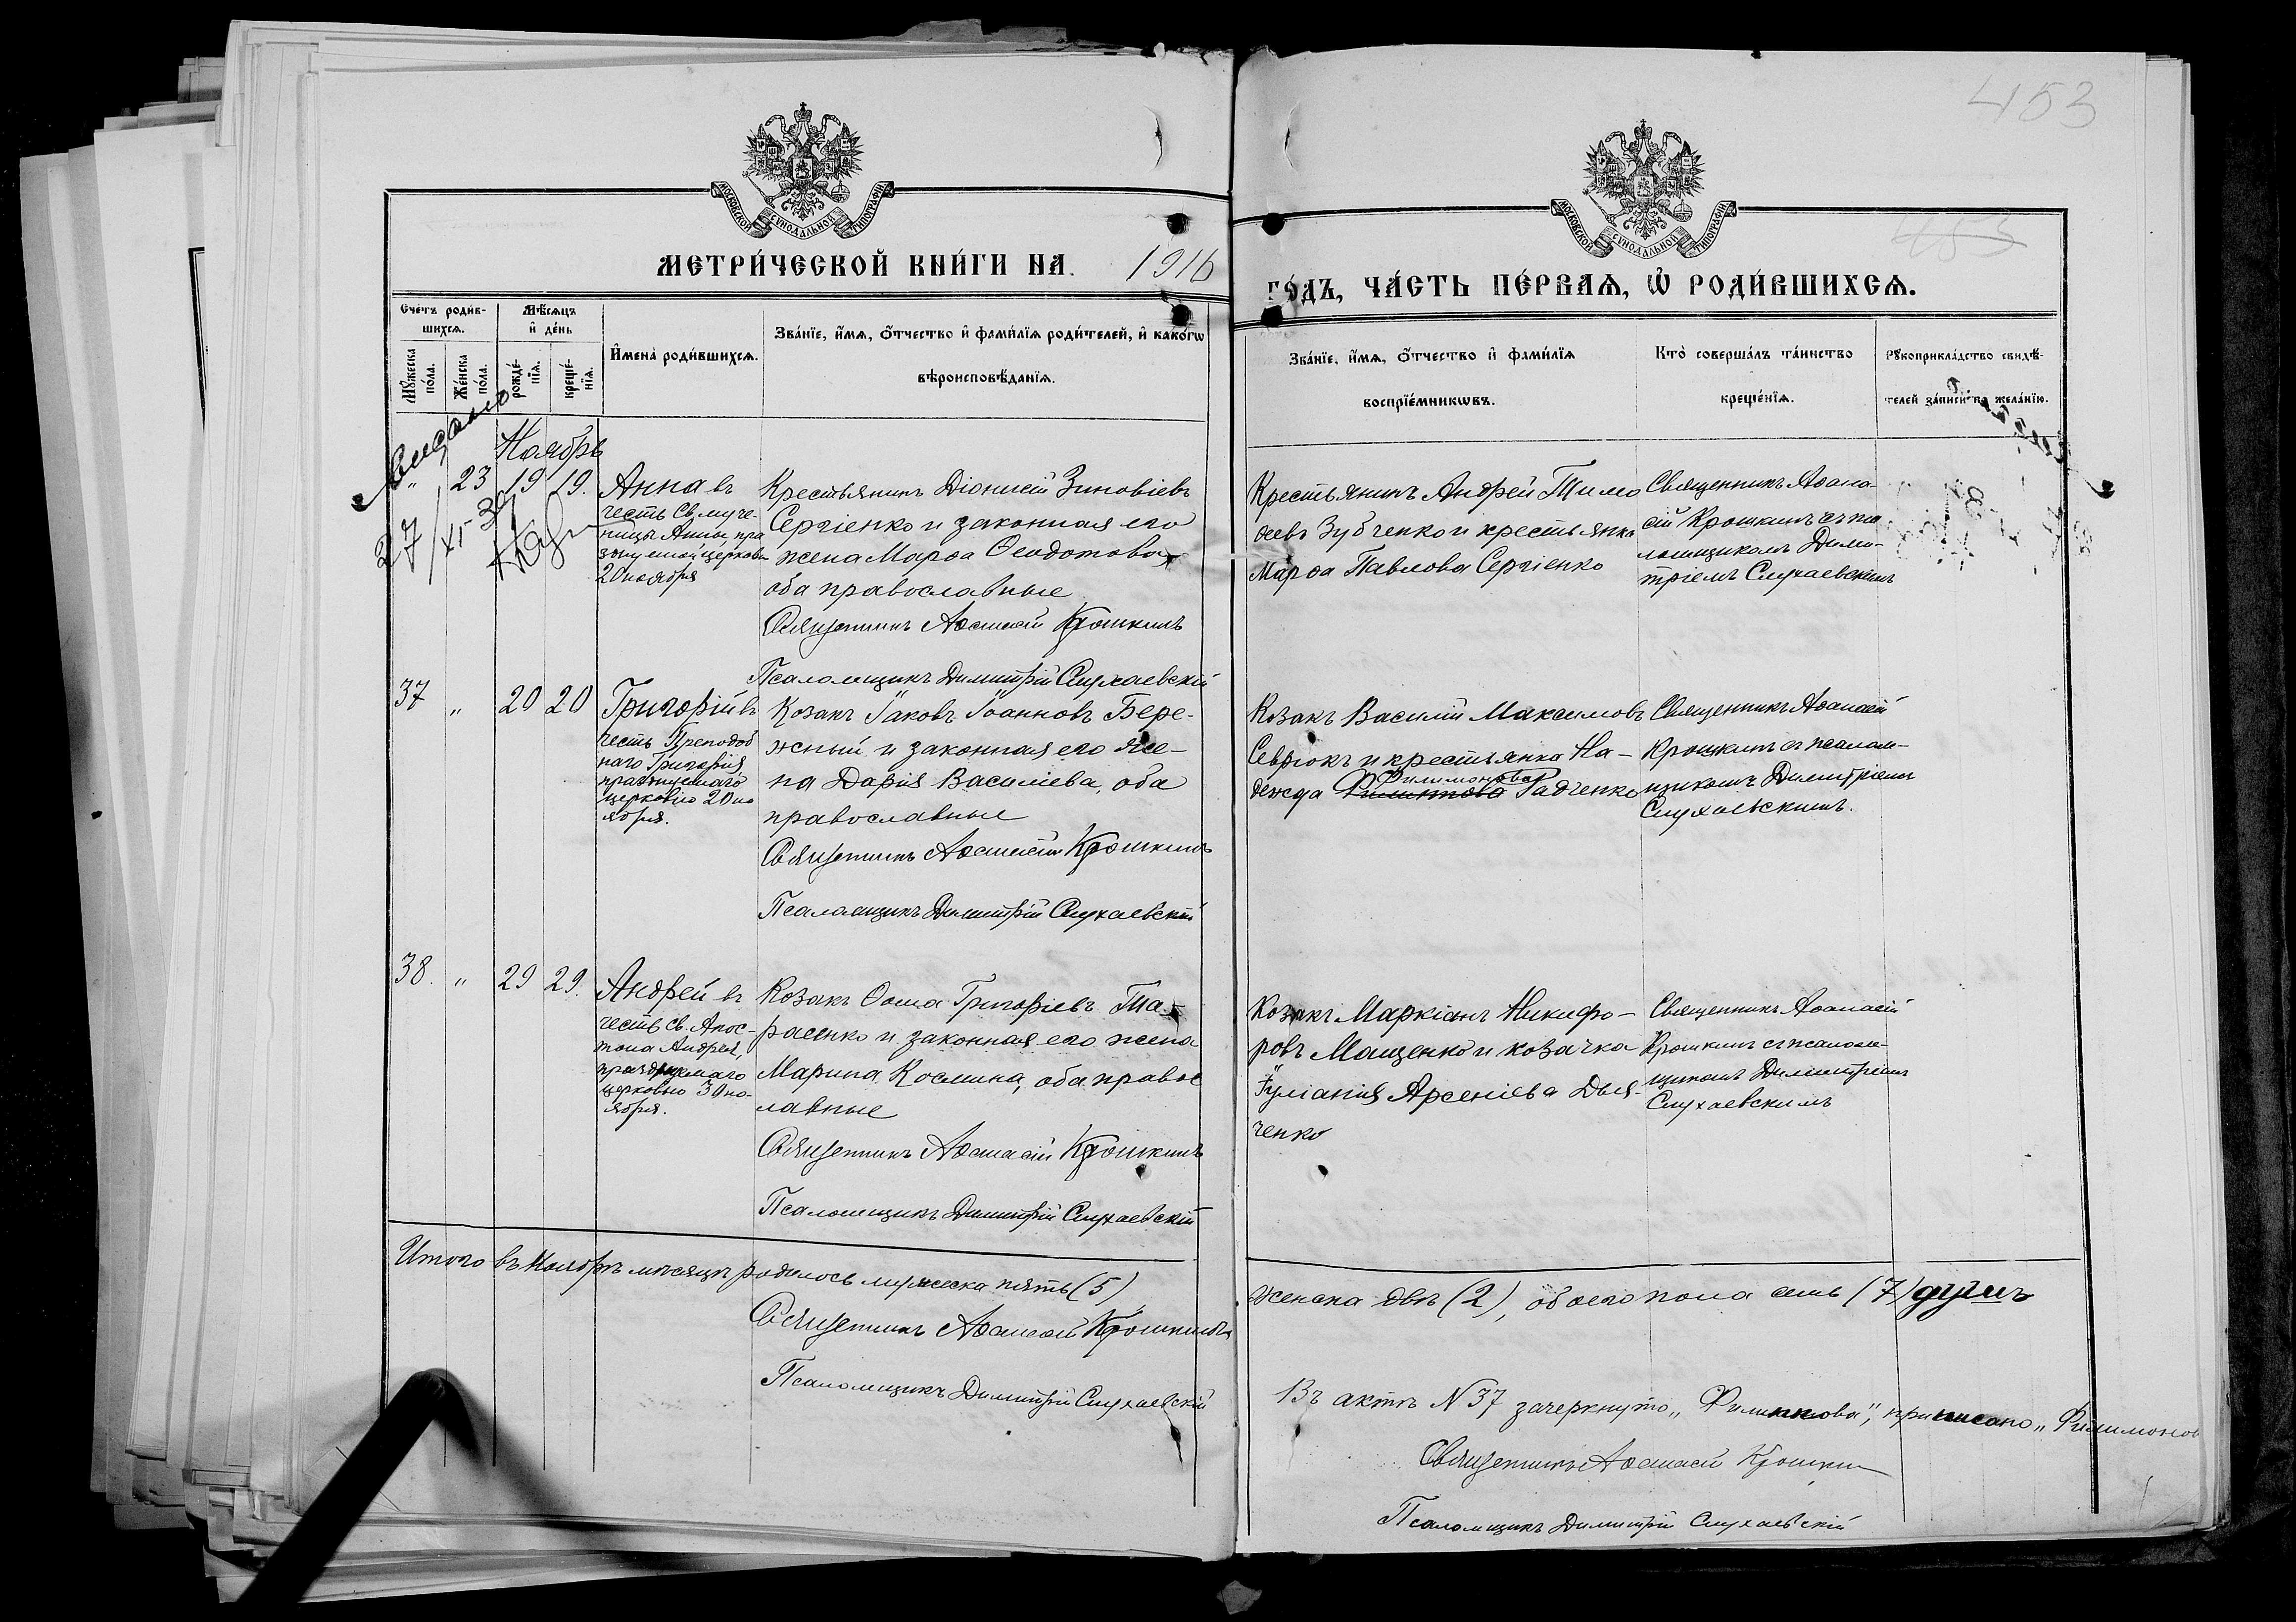 453
МОСКОВСКОЙ СѴНОДАЛЬНОЙ ТИПОГРАФІИ
МОСКОВСКОЙ СѴНОДАЛЬНОЙ ТИПОГРАФІИ
453
МЕТРИ́ЧЕСКОЙ КНИ́ГИ НА 1916
ГО́ДЪ, ЧА́СТЬ ПЕ́РВАѦ, Ѡ҆ РОДИ́ВШИХСѦ.
Сче́тъ роди́в-
шихсѧ.
Мꙋ́жеска
по́ла.
Же́нска
по́ла.
Мѣ́сѧцъ
и҆ де́нь
рожде́-
нїѧ.
креще́-
нїѧ.
И҆мена̀ роди́вшихсѧ.
Зва́нїе, и҆́мѧ, ѻ҆́тчество и҆ фами́лїѧ роди́телей, и҆ како́гѡ
вѣроисповѣ́данїѧ.
Зва́нїе, и҆́мѧ, ѻ҆́тчество и҆ фами́лїѧ
воспрїе́мникѡвъ.
Кто̀ соверша́лъ та́инство
креще́нїѧ.
Рꙋкоприкла́дство свидѣ́-
телей за́писи по жела́нїю.
Выдано
27/XI 39
Ноябрь
" 23 19 19.
Анна въ
честь Св. муче-
ницы Анны, пра
зднуемой церковью
20 ноября
Крестьянинъ Діонисій Зиновіевъ
Сергіенко и законная его
жена Марѳа Ѳеодотова,
оба православные
Священникъ Аѳанасій Крошкинъ
Псаломщикъ Димитрій Слухаевскій
Крестьянинъ Андрей Тимо
ѳеевъ Зубченко и крестьянка
Марѳа Павлова Сергіенко
Священникъ Аѳана-
сій Крошкинъ съ пса
ломщикомъ Дими-
тріемъ Слухаевскимъ
37 " 20 20
Григорій въ
честь Преподоб
наго Григорія
празднуемаго
церковію 20 но
ября.
Козакъ Іаковъ Іоанновъ Бере-
жный и законная его же-
на Дарія Василіева, оба
православные
Священникъ Аѳанасій Крошкинъ
Псаломщикъ Димитрій Слухаевскій
Козакъ Василій Максимовъ
Севрюкъ и крестьянка На-
Филимонова
дежда Филиппова Радченко
Священникъ Аѳанасій
Крошкинъ съ псалом-
щикомъ Димитріемъ
Слухаевскимъ.
38. " 29 29.
Андрей въ
честь св. Апос-
тола Андрея,
празднуемаго
церковью 30 но-
ября.
Козакъ Ѳома Григоріевъ Та-
расенко и законная его жена
Марина Космина, оба правос
лавные
Священникъ Аѳанасій Крошкинъ
Псаломщикъ Димитрій Слухаевскій
Козакъ Маркіанъ Никифо-
ровъ Мащенко и козачка
Іуліанія Арсеніева Дья-
ченко
Священникъ Аѳанасій
Крошкинъ съ псалом-
щикомъ Димитріемъ
Слухаевскимъ
Итого въ Ноябрѣ мѣсяцѣ родилось мужеска пять (5)
Священникъ Аѳанасій Крошкинъ
Псаломщикъ Димитрій Слухаевскій
женска двѣ (2), обоего пола семь (7) душъ
Въ актѣ N 37 зачеркнуто „Филиппова", приписано „Филимонов
Священникъ Аѳанасій Крошкин
Псаломщикъ Димитрій Слухаевскій